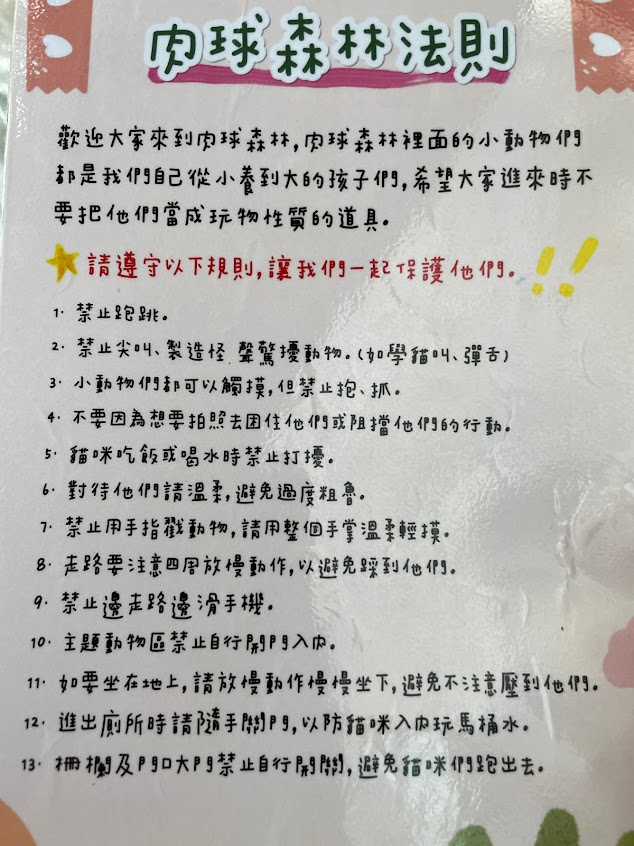 肉球森林法則
歡迎大家來到肉球森林,肉球森林裡面的小動物們
都是我們自己從小養到大的孩子們,希望大家進來時不
要把他們當成玩物性質的道具。
請遵守以下規則,讓我們一起保護他們。!!
1. 禁止跑跳。
2. 禁止尖叫、製造怪 聲驚擾動物。(如學貓叫、彈舌)
3. 小動物們都可以觸摸,但禁止抱、抓。
4. 不要因為想要拍照去困住他們或阻擋他們的行動。
5. 貓咪吃飯或喝水時禁止打擾。
6. 對待他們請溫柔,避免過度粗魯。
7. 禁止用手指戳動物,請用整個手掌溫柔輕摸。
8. 走路要注意四周放慢動作,以避免踩到他們。
9. 禁止邊走路邊滑手機。
10. 主題動物區禁止自行開門入內。
11. 如要坐在地上,請放慢動作慢慢坐下,避免不注意壓到他們。
12. 進出廁所時請隨手關門,以防貓咪入內玩馬桶水。
13. 柵欄及門口大門禁止自行開關,避免貓咪們跑出去。